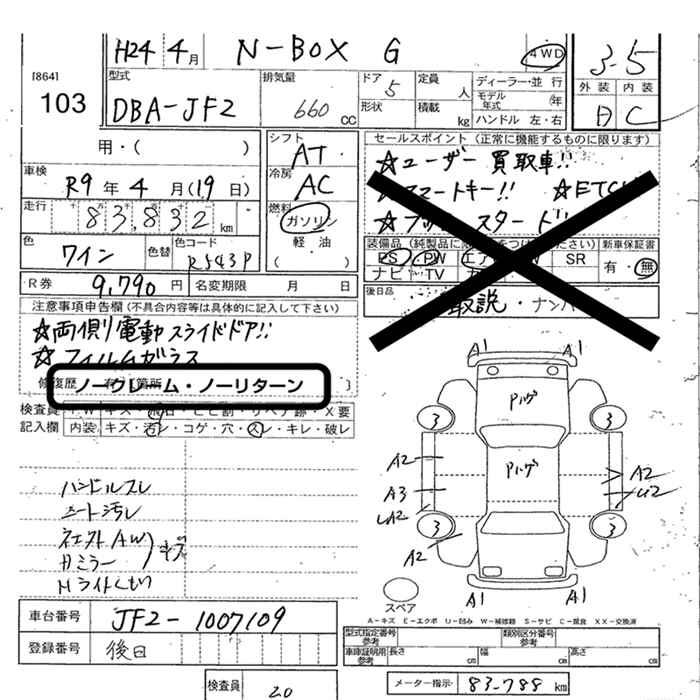 H24 4月 N-BOX G 4WD 3.5
[864] 型式 排気量 ドア 5 定員 人 ディーラー・並 行 外装 内装
103 DBA-JF2 660 CC 形状 積載 kg モデル年式 /年 ハンドル 左・右 A C
用・( )
シフト AT
セールスポイント (正常に機能するものに限ります)
☆ユーザー買取車!!
車検 R9年4月(19日)
冷房 AC
☆スマートキー!! ☆ETC
走行 83,832 km
燃料 ガソリン 軽油 ( )
☆プッシュスタート
色 ワイン 色替 色コード R543P
装備品 (純製品に をつけ ださい) 新車保証書
PS PW エア SR 有・無
ナビ TV
R券 9,790 円 名変期限 月 日
後日品 取説・ナンバ
注意事項申告欄 (不具合内容等は具体的に記入して下さい)
☆両側電動スライドドア!!
☆フィルムガラス
修復歴
ノークレーム・ノーリターン
検査員記入欄
内装 キズ・汚レ・コゲ・穴・スレ・キレ・破レ
ハンドルスレ
シート汚し
ネクストAW
Hミラー
キズ
Hライトくもり
A1 A1
Pルーフ
3 3
A2 Pルーフ A2
A3 U2
A2
3 3
A2
A1 A1
スペア
A-キズ E-エクボ U-凹み W-補修跡 S-サビ C-腐食 XX-交換済
車台番号 JF2-1007109
登録番号 後日
型式指定番号 参考 類別区分番号 参考
車庫証明用 参考 長さ cm 幅 cm 高さ cm
検査員 20
メーター指示 83.788 km